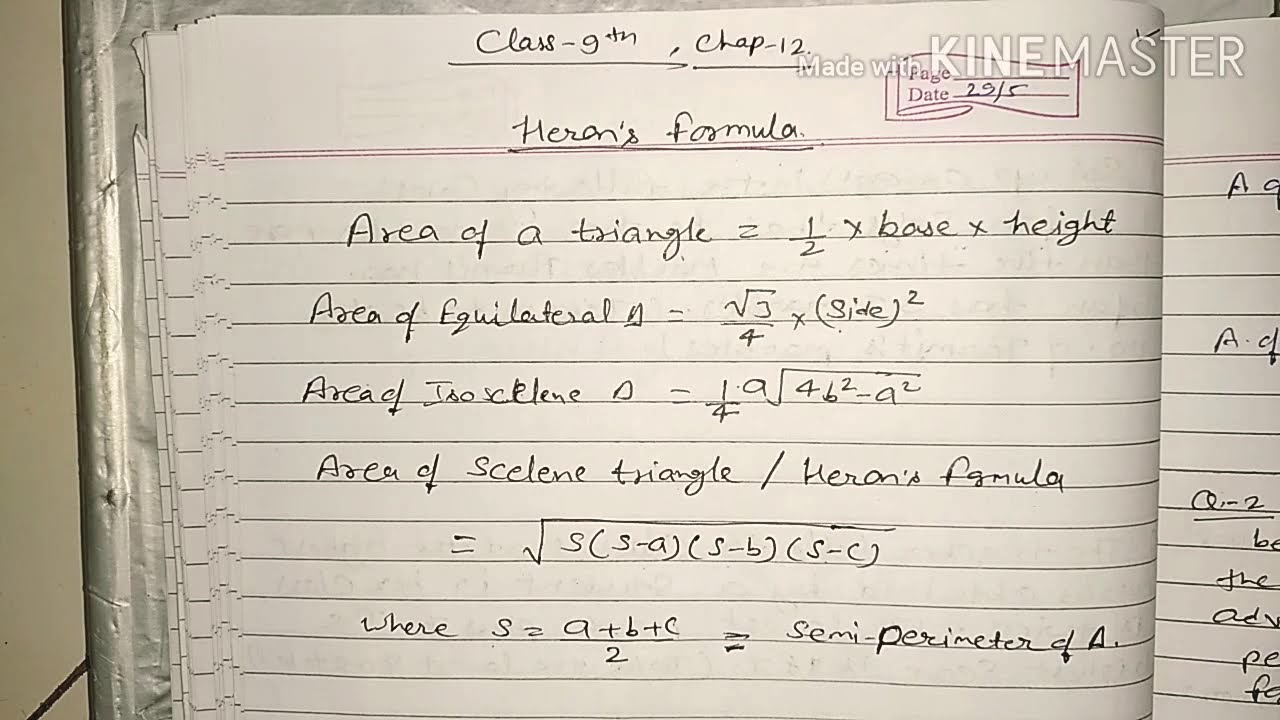 Class-9th, Chap-12.
Made with KINEMASTER
Page
Date 29/5
Heron's formula.
Area of a triangle = 1/2 × base × height
Area of Equilateral Δ = √3/4 × (Side)²
Area of Isoscelene Δ = 1/4 a√(4b²-a²)
Area of Scelene triangle / Heron's formula
= √(S(S-a)(S-b)(S-c))
where S = (a+b+c)/2 = Semi-perimeter of Δ.
A
A. of
Q.-2
be
the
adv
pe
fo